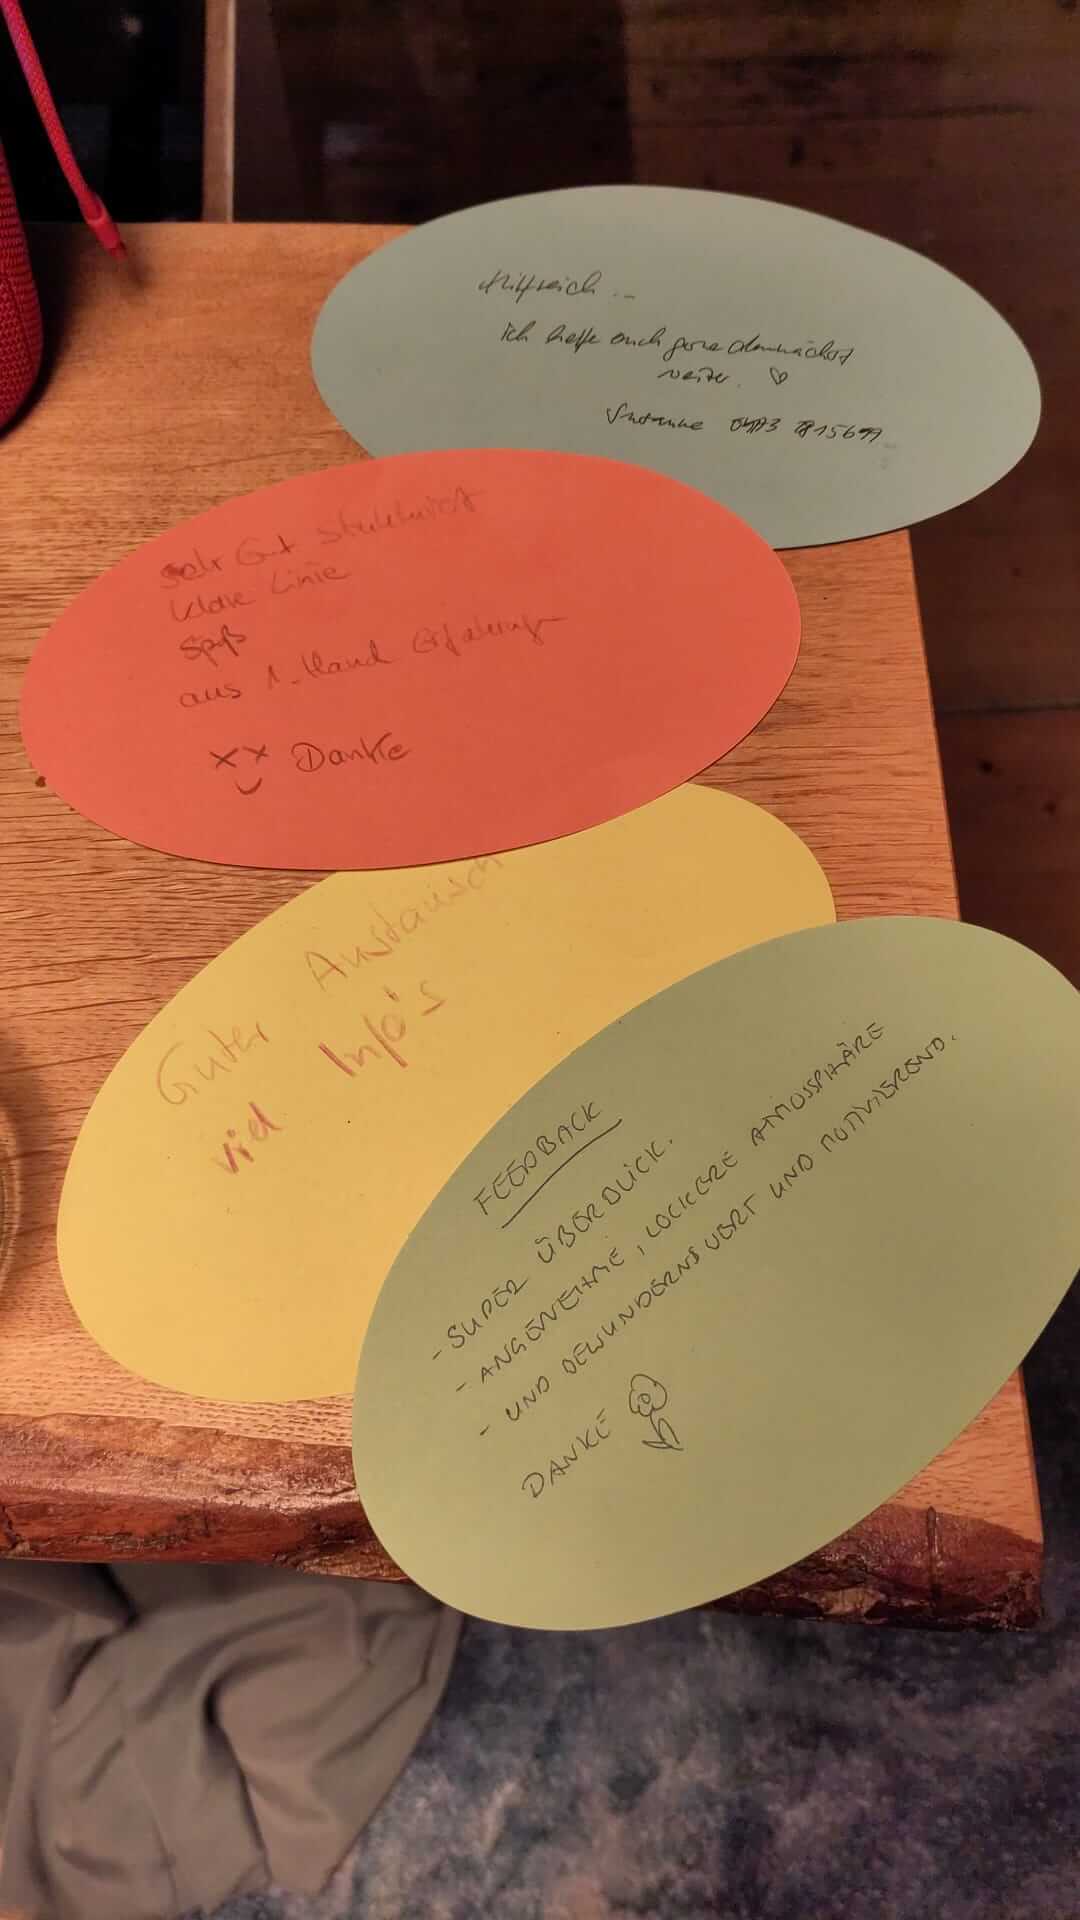 Hilfreich ..
ich helfe auch gerne demnächst
weiter. ♡
Susanne
sehr Gut strukturiert
klare Linie
Spaß
aus 1. Hand Erfahrungen
Danke
Guter Austausch
viel Info's
FEEDBACK
- SUPER ÜBERBLICK.
- ANGENEHME, LOCKERE ATMOSPHÄRE
- UND BEWUNDERNSWERT UND MOTIVIEREND.
DANKE